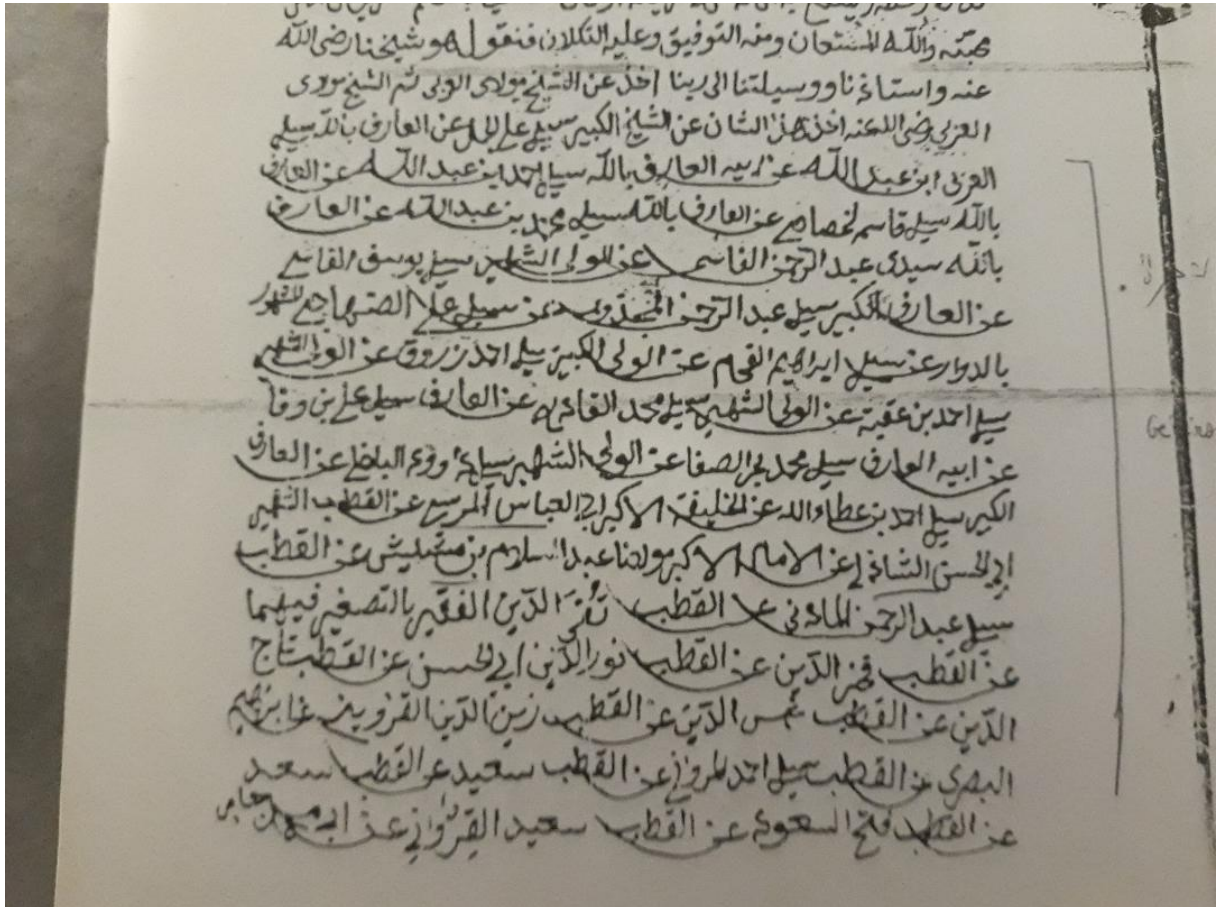 محبته والله المستعان ومنه التوفيق وعليه التكلان فنقول هو شيخنا رضى الله
عنه واستاذنا ووسيلتنا الى ربنا اخذ عن الشيخ مولاى الولى ثم الشيخ مولاى
العربى رضى الله عنه اخذ هذا الشان عن الشيخ الكبير سيدى على الجمل عن العارف بالله سيدى
العربى ابن عبد الله عن ابيه العارف بالله سيدى احمد بن عبد الله عن العارف
بالله سيدى قاسم لخصاصى عن العارف بالله سيدى محمد بن عبد الله عن العارف
بالله سيدى عبد الرحمن الفاسى عن الولى الشهير سيدى يوسف الفاسى
عن العارف الكبير سيدى عبد الرحمن المجذوب عن سيدى على الصنهاجى المشهور
بالدوار عن سيدى ابراهيم الفحام عن الولى الكبير سيدى احمد زروق عن الولى الشهير
سيدى احمد بن عقبة عن الولى الشهير سيدى محمد القادرى عن العارف سيدى على بن وفا
عن ابيه العارف سيدى محمد بحر الصفا عن الولى الشهير سيدى داوود الباخلى عن العارف
الكبير سيدى احمد بن عطاء الله عن الخليفة الاكبر ابى العباس المرسى عن القطب الشهير
ابى الحسن الشاذلى عن الامام الاكبر مولانا عبد السلام بن مشيش عن القطب
سيدى عبد الرحمن المادنى عن القطب تُقَىّ الدّين الفقير بالتصغير فيهما
عن القطب فخر الدّين عن القطب نور الدّين ابى الحسن عن القطب تاج
الدّين عن القطب شمس الدّين عن القطب زين الدّين القزوينى عن ابراهيم
البصرى عن القطب سيدى احمد المروانى عن القطب سعيد عن القطب سعد
عن القطب فتح السعود عن القطب سعيد القزوانى عن ابى محمد جابر